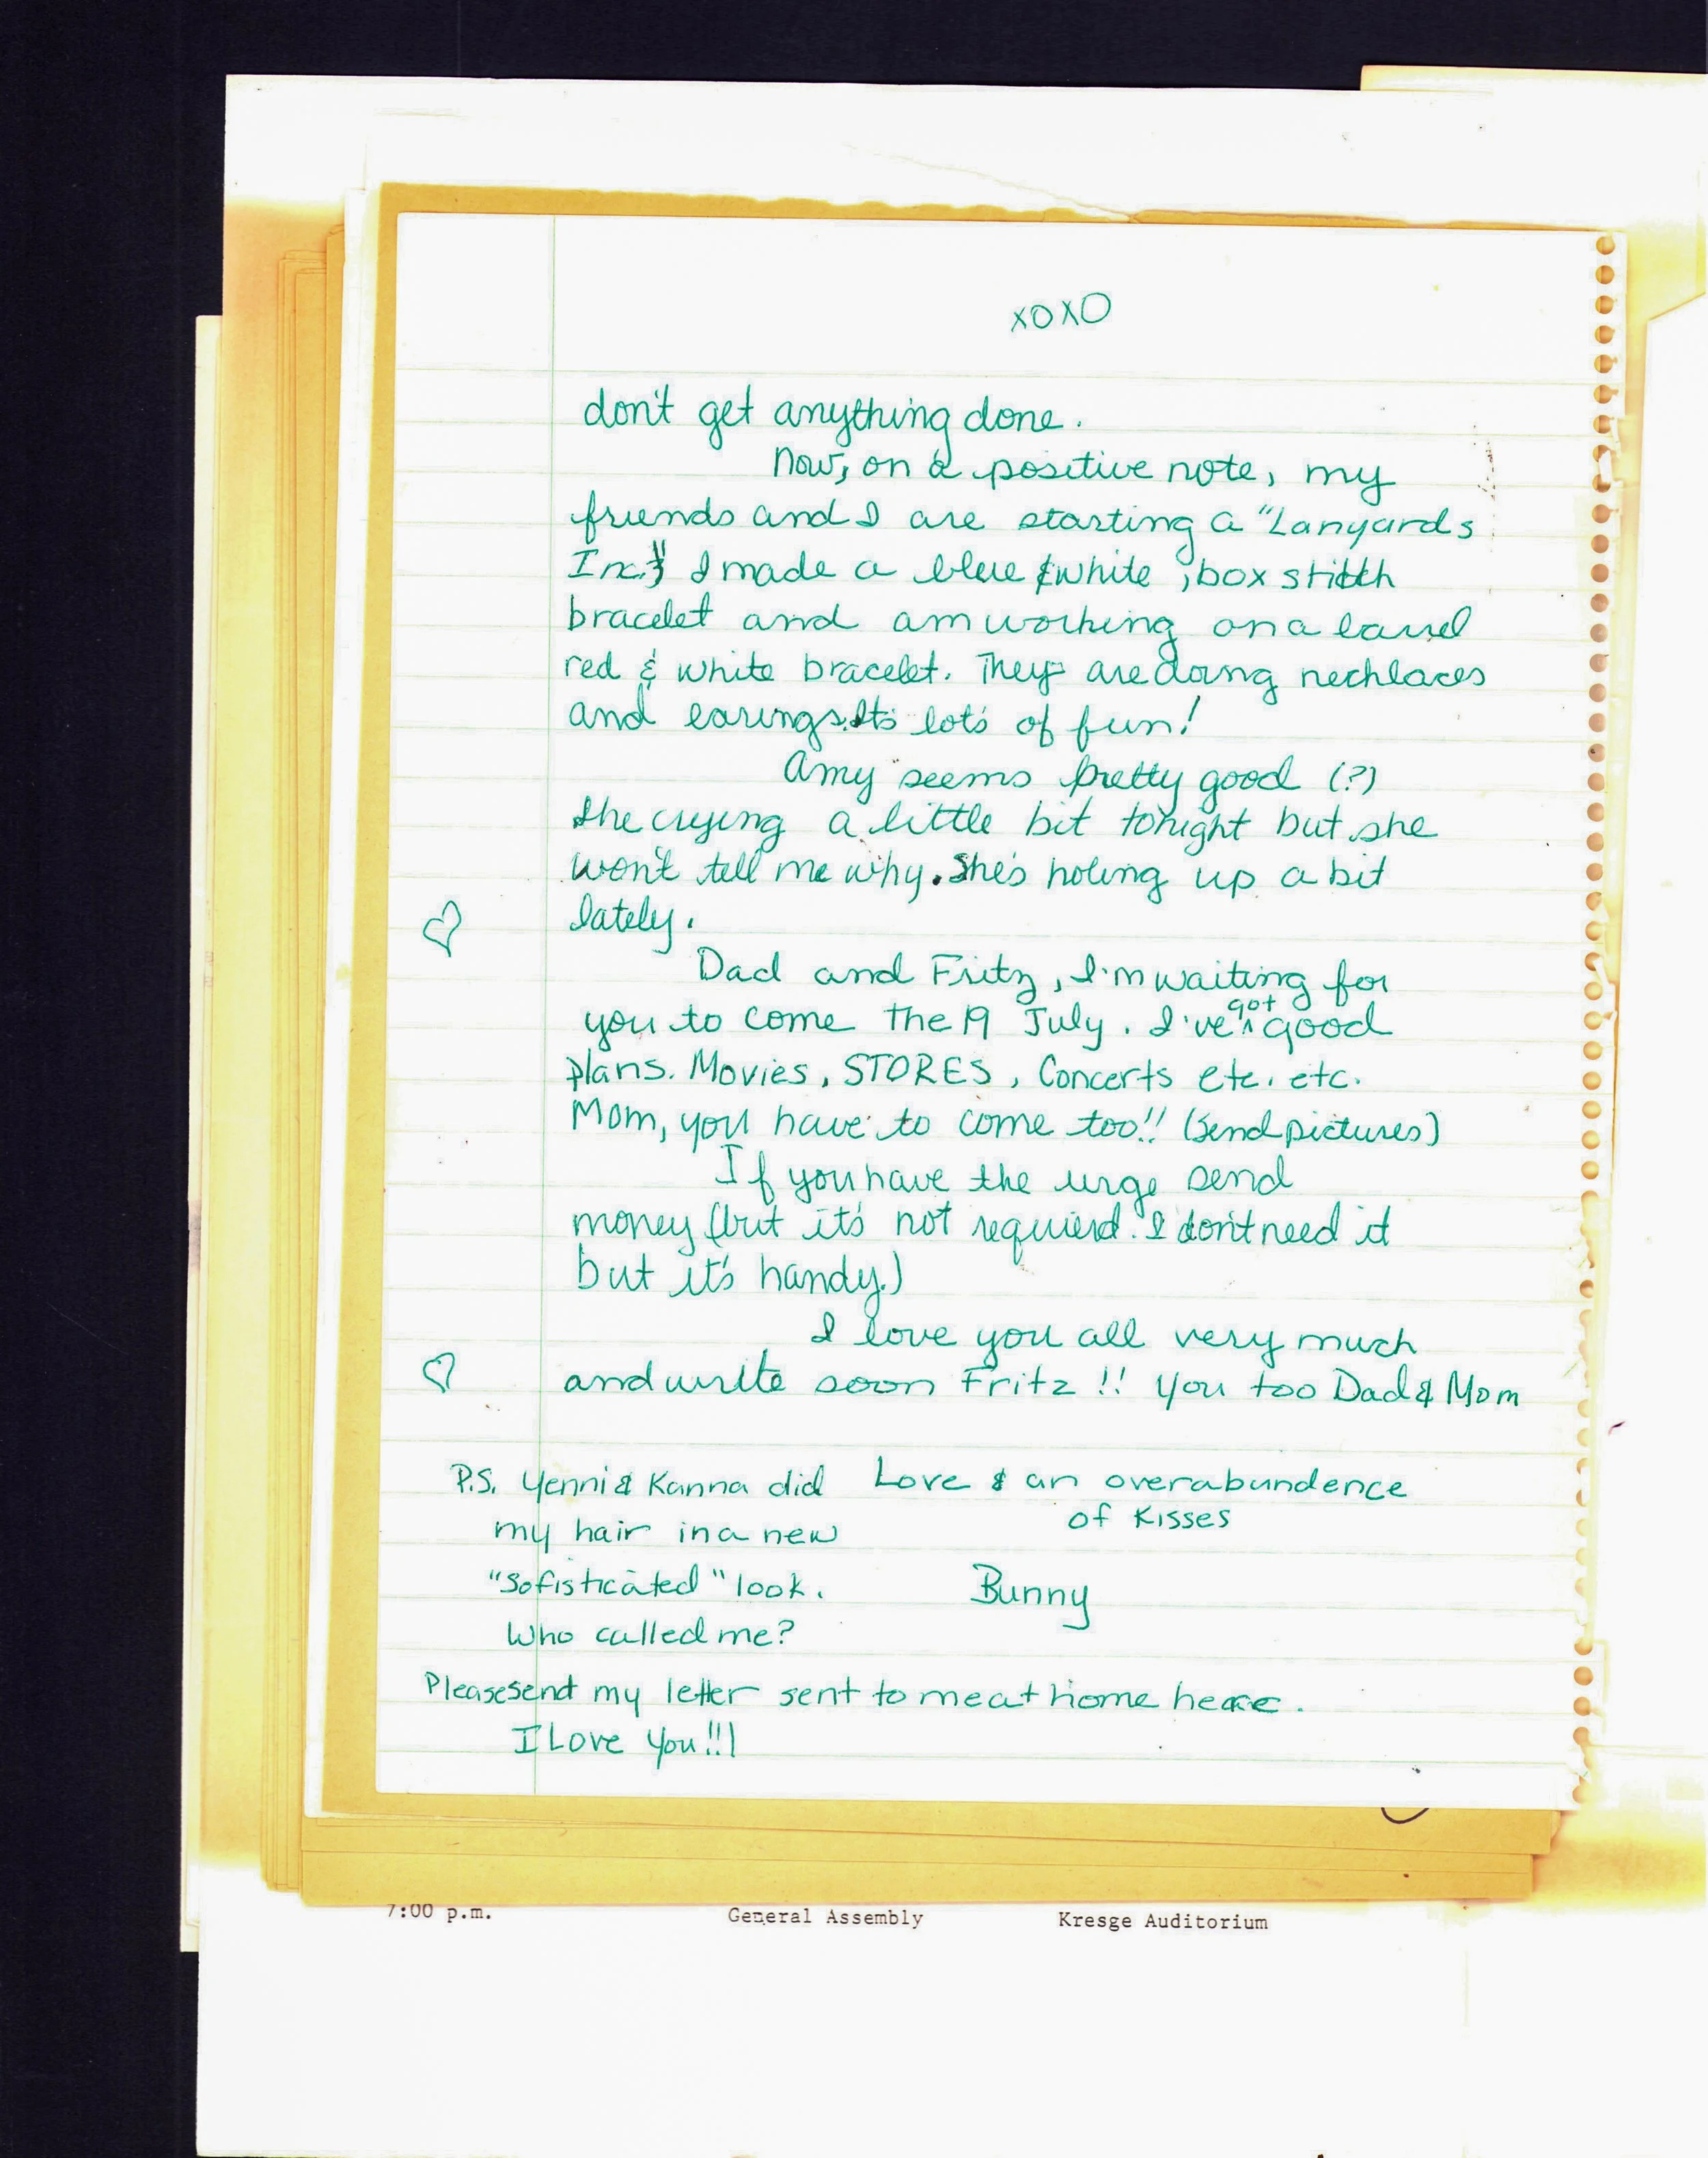 xoxo
don't get anything done.
Now, on a positive note, my
friends and I are starting a "Lanyards
Inc." I made a blue & white, box stitch
bracelet and am working on a barrel
red & white bracelet. They are doing necklaces
and earings. It's lot's of fun!
Amy seems pretty good (?)
She crying a little bit tonight but she
won't tell me why. She's holing up a bit
lately.
Dad and Fritz, I'm waiting for
you to come the 19 July. I've got good
plans. Movies, STORES, Concerts etc. etc.
Mom, you have to come too!! (Send pictures)
If you have the urge send
money (but it's not requierd. I don't need it
but it's handy.)
I love you all very much
and write soon Fritz!! You too Dad & Mom
P.S. Yenni & Kanna did
my hair in a new
"Sofisticated" look.
Who called me?
Love & an overabundence
of Kisses
Bunny
Please send my letter sent to me at home here.
I Love You!!!
7:00 p.m. General Assembly Kresge Auditorium